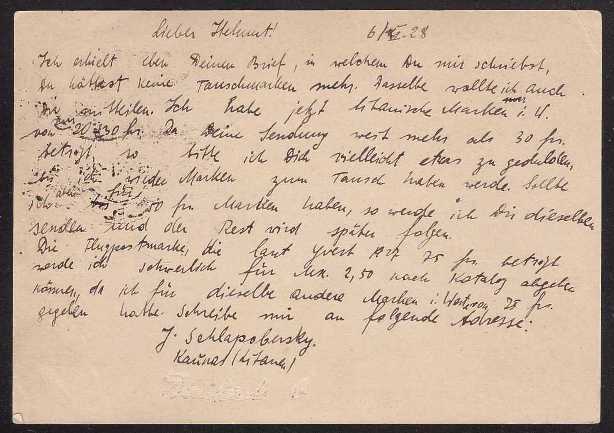 Lieber Helmut! 6/ -28
Ich erhielt eben Deinen Brief, in welchem Du mir schriebst,
Du hättest keine Tauschmarken mehr. Dasselbe wollte ich auch
Dir mitteilen. Ich habe jetzt litauische Marken nur i. W.
von 20-30 fr. Da Deine Sendung weit mehr als 30 fr.
beträgt, so bitte ich Dich vielleicht etwas zu gedulden,
bis ich wieder Marken zum Tausch haben werde. Sollte
ich aber für 50 fr. Marken haben, so werde ich Dir dieselben
senden und der Rest wird später folgen.
Die Flugpostmarke, die laut Yvert 1927 75 fr. beträgt
werde ich schwerlich für Mk. 2,50 nach Katalog abgeben
können, da ich für dieselbe andere Marken i. Werte von 75 fr.
gegeben habe. Schreibe mir an folgende Adresse:
J. Schlapobersky.
Kaunas (Litauen)